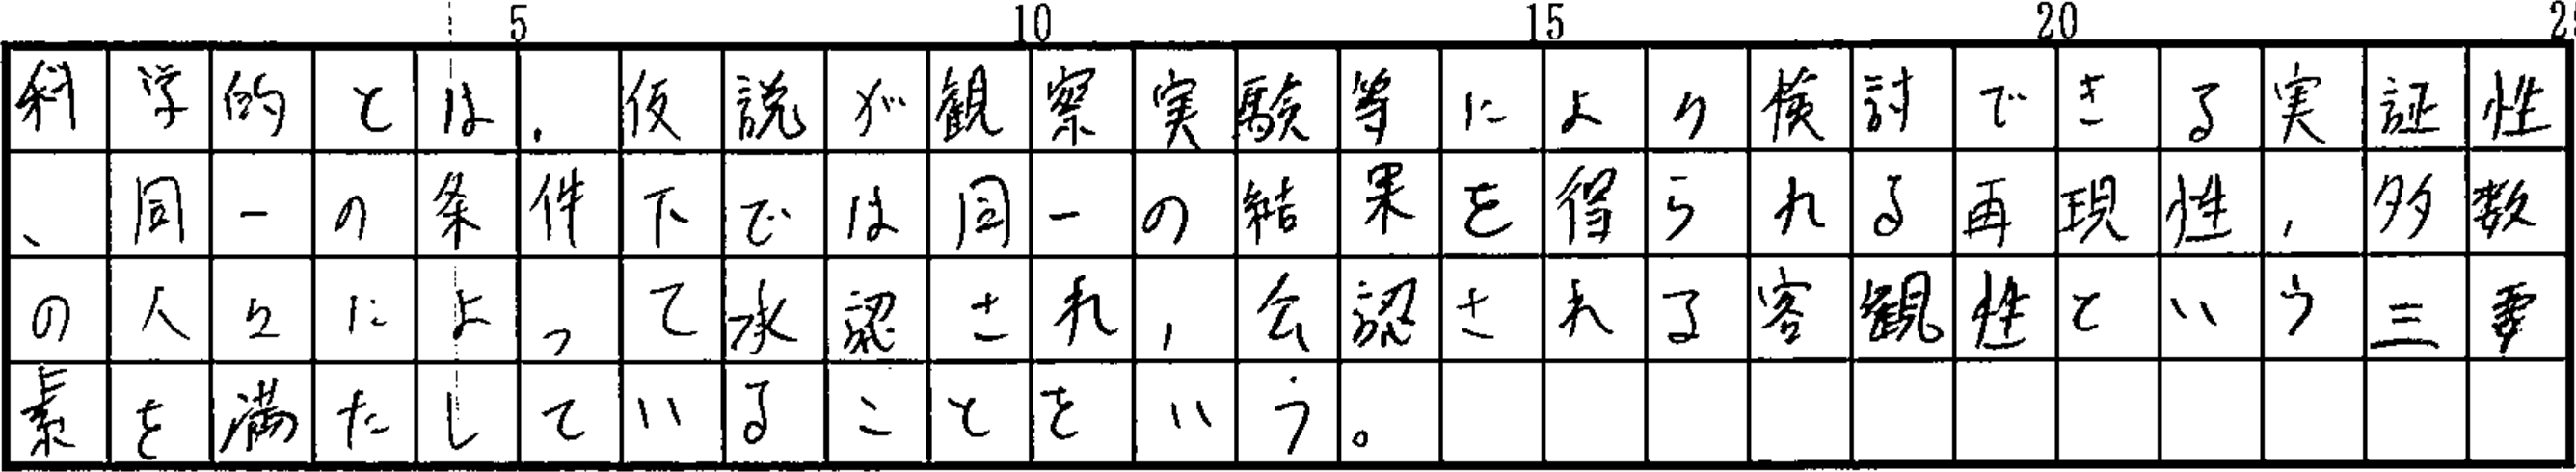 5 10 15 20 2
科学的とは,仮説が観察実験等により検討できる実証性
、同一の条件下では同一の結果を得られる再現性,多数
の人々によって承認され,公認される客観性という三要
素を満たしていることをいう。